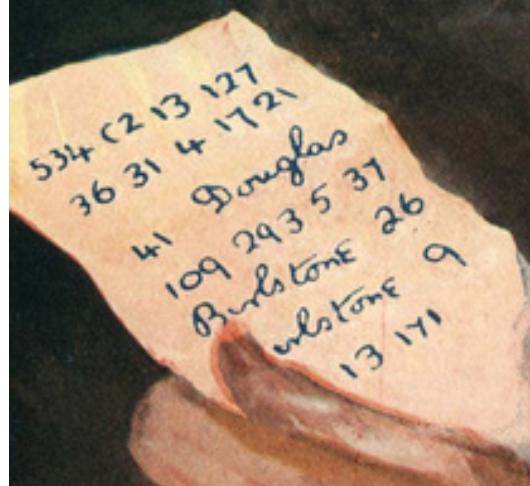 534 C2 13 127
36 31 4 17 21
41 Douglas
109 293 5 37
Birlstone 26
irlstone 9
13 171